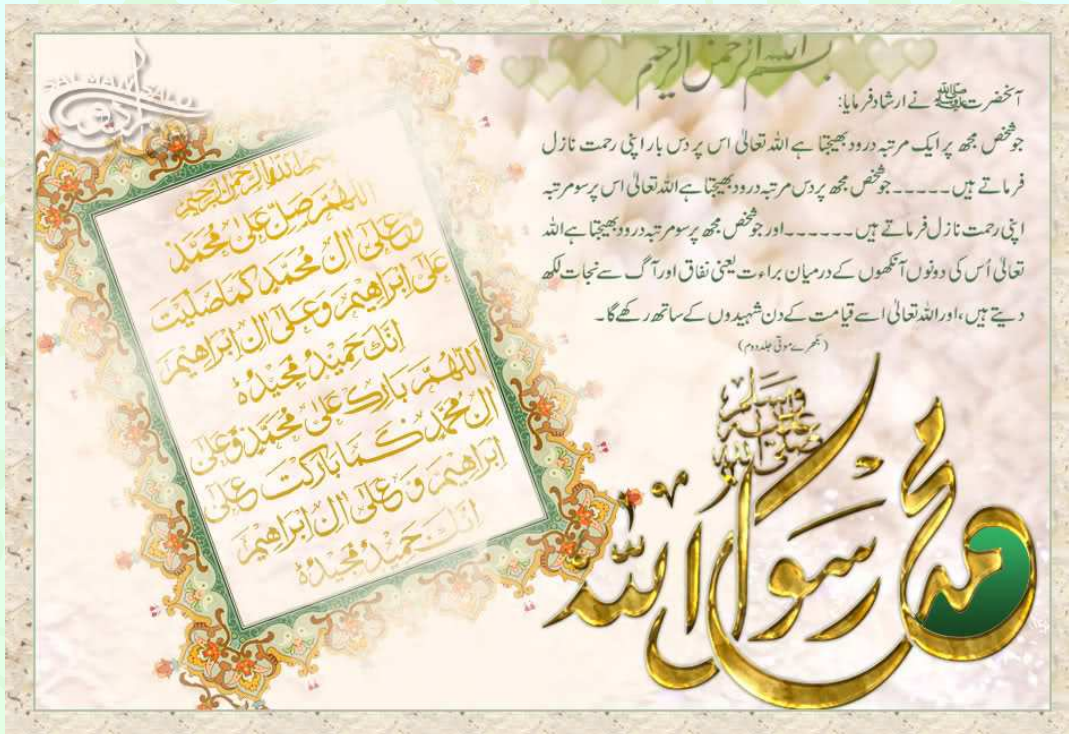 بسم اللہ الرحمن الرحیم
آنحضرت ﷺ نے ارشاد فرمایا:
جو شخص مجھ پر ایک مرتبہ درود بھیجتا ہے اللہ تعالیٰ اس پر دس بار اپنی رحمت نازل
فرماتے ہیں ۔۔۔۔۔ جو شخص مجھ پر دس مرتبہ درود بھیجتا ہے اللہ تعالیٰ اس پر سو مرتبہ
اپنی رحمت نازل فرماتے ہیں ۔۔۔۔۔۔ اور جو شخص مجھ پر سو مرتبہ درود بھیجتا ہے اللہ
تعالیٰ اُس کی دونوں آنکھوں کے درمیان براءت یعنی نفاق اور آگ سے نجات لکھ
دیتے ہیں، اور اللہ تعالیٰ اسے قیامت کے دن شہیدوں کے ساتھ رکھے گا ۔
(بکھرے موتی جلد دوم)
محمد رسول الله
صلى الله عليه وسلم
SALMAN SALO
بسم الله الرحمن الرحيم
اللهم صل على محمد
وعلى ال محمد كما صليت
على ابراهيم وعلى ال ابراهيم
انك حميد مجيدہ
اللهم بارك على محمد وعلى
ال محمد كما باركت على
ابراهيم وعلى ال ابراهيم
انك حميد مجيدہ